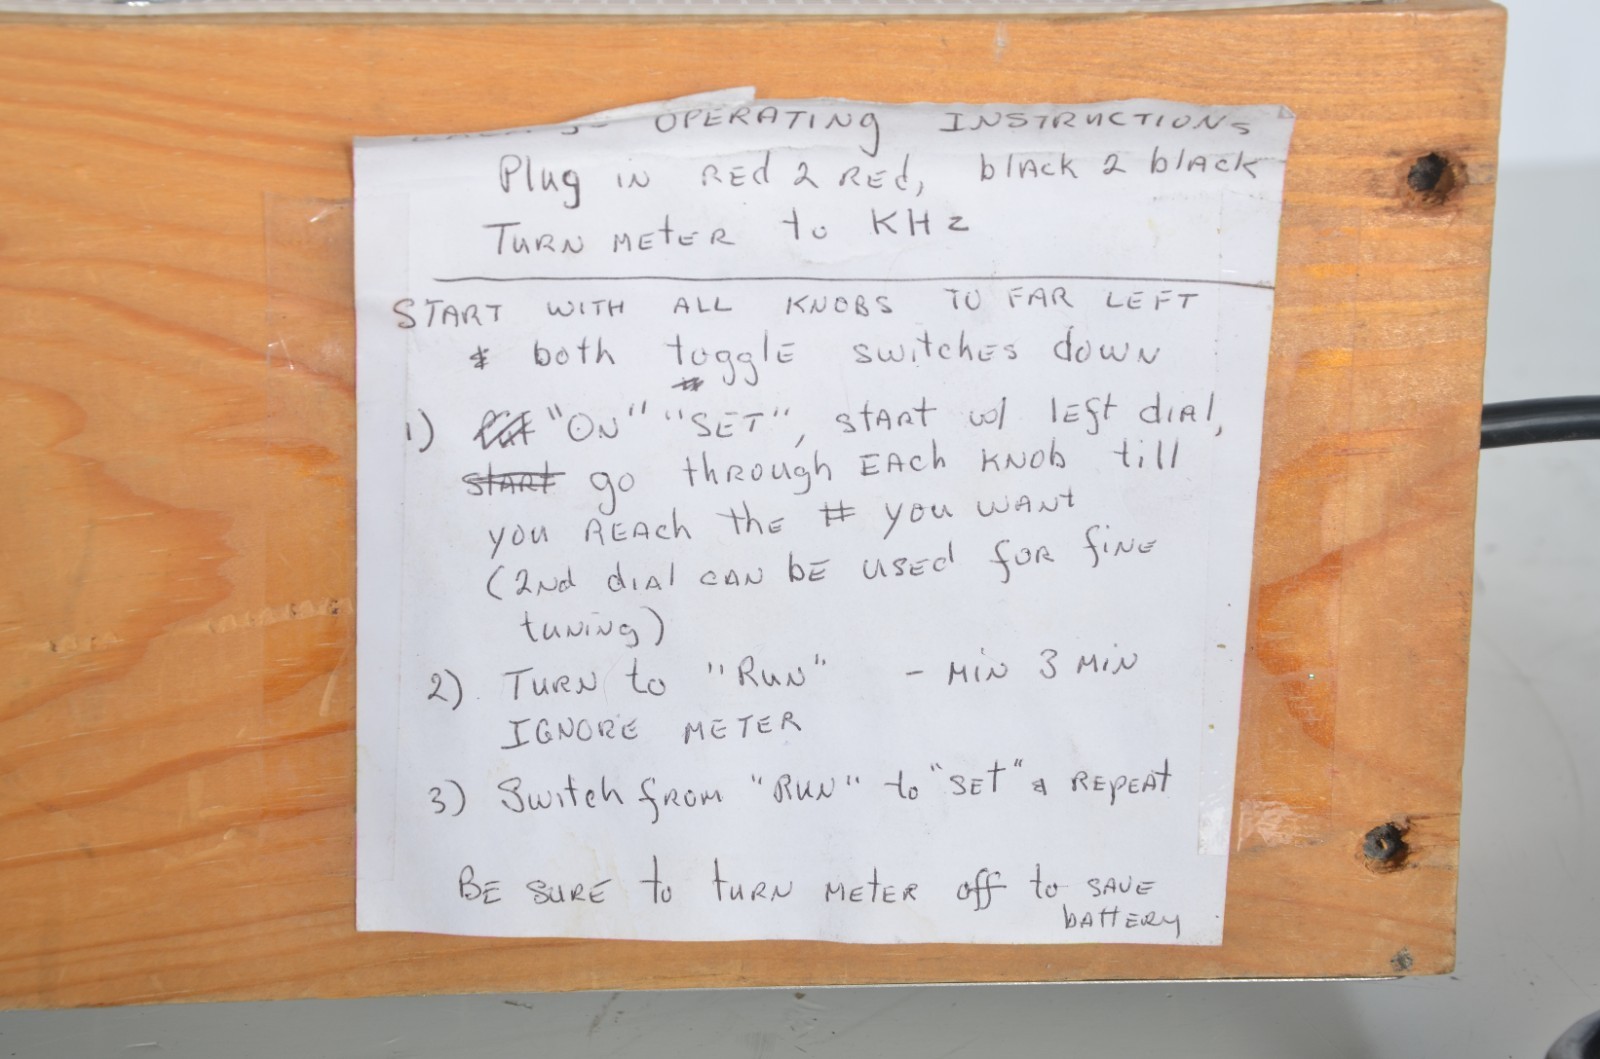 OPERATING INSTRUCTIONS
Plug in RED 2 RED, black 2 black
TURN METER to KHz
START WITH ALL KNOBS TO FAR LEFT
& both toggle switches down
1) "ON" "SET", START w/ left dial,
start go through EACh KNOb till
you REACh thE # you WANt
(2Nd diAl CAN bE USEd foR fiNE
tuning)
2) TURN to "RUN" - MIN 3 MIN
IGNORE METER
3) Switch fROM "RUN" to "SEt" & REPEAt
BE SURE to tURN METER off to SAVE
bAttERy